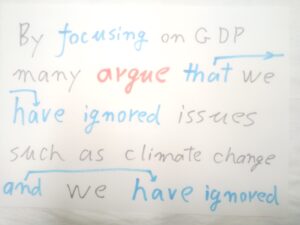 By focusing on GDP
many argue that we
have ignored issues
such as climate change
and we have ignored